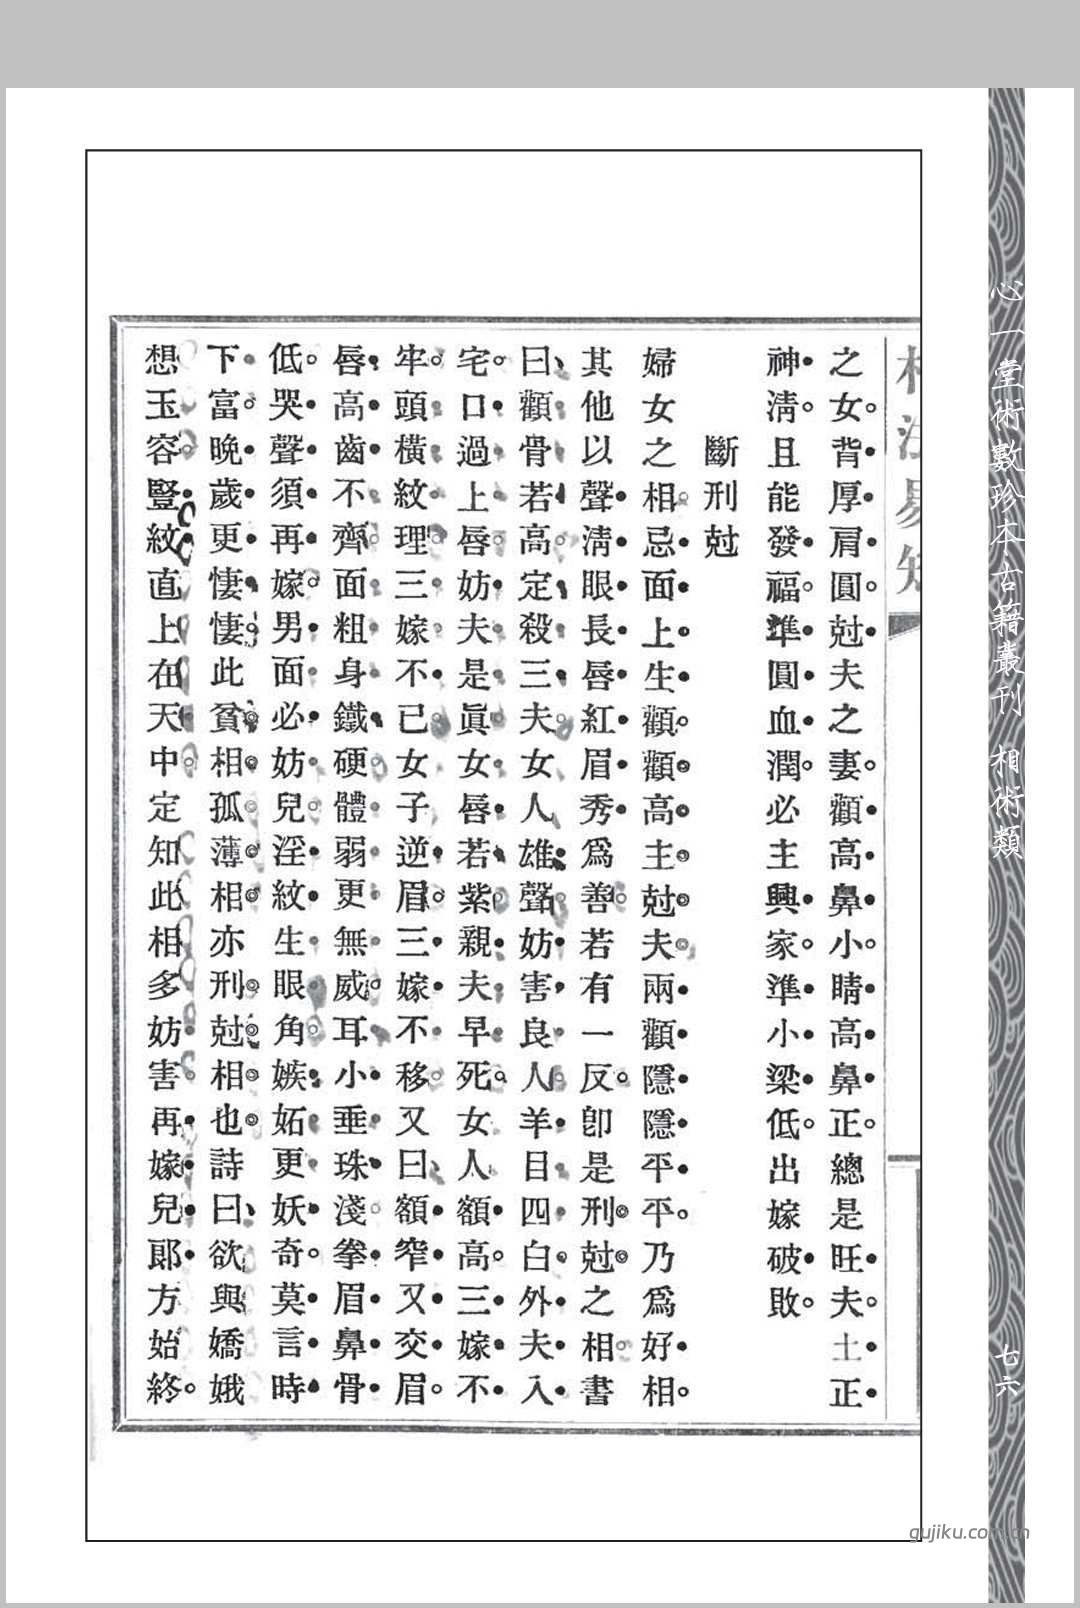 心一堂術數珍本古籍叢刊 相術類
七六
相法易知
之女。背厚肩圓。尅夫之妻。顴高鼻小。睛高鼻正。總是旺夫。土正
神淸。且能發福。準圓血潤。必主興家。準小梁低。出嫁破敗。
斷刑尅
婦女之相。忌面上生顴。顴高主尅夫。兩顴隱隱平平。乃爲好相。
其他以聲淸眼長唇紅眉秀爲善。若有一反。卽是刑尅之相。書
曰、顴骨若高。定殺三夫。女人雄聲。妨害良人。羊目四白。外夫入
宅。口過上唇。妨夫是眞。女唇若紫。親夫早死。女人額高。三嫁不
牢。頭橫紋理。三嫁不已。女子逆眉。三嫁不移。又曰、額窄又交眉。
唇高齒不齊。面粗身鐵硬。體弱更無威。耳小垂珠淺。拳眉鼻骨
低。哭聲須再嫁。男面必妨兒。淫紋生眼角。嫉妬更妖奇。莫言時
下富。晚歲更悽悽。此貧相孤薄相亦刑尅相也。詩曰、欲與嬌娥
想玉容。豎紋直上在天中。定知此相多妨害。再嫁兒郞方始終。
gujiku.com.cn